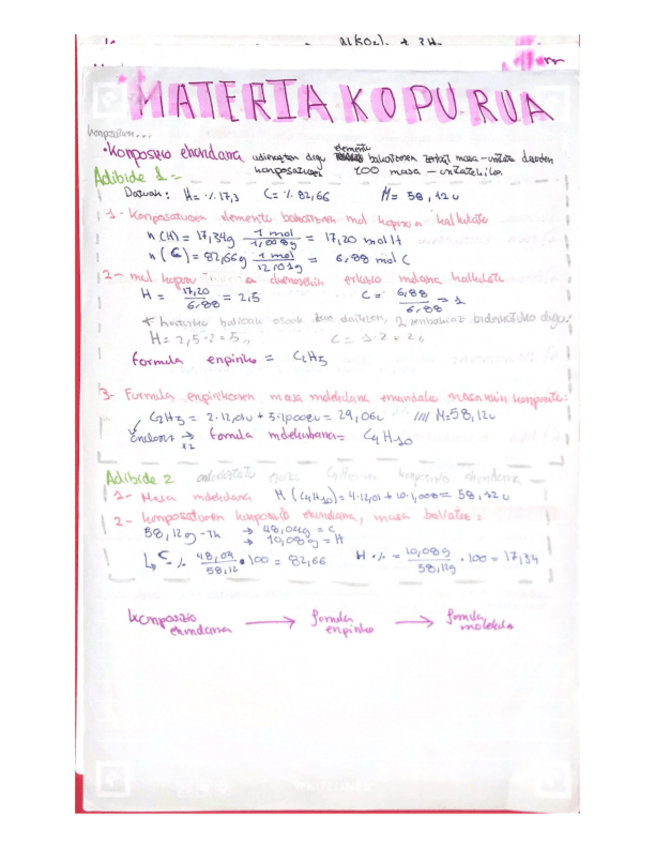 MATERIA KOPURUA
• Konposizio ehundarra adierazten digu elementu bakoitzaren zenbat masa-unitate dauden
konposatuaren 100 masa-unitateko
Adibide 1 =
Datuak: H = % 17,3 C = % 82,66 M = 58,12 u
1- Konposatuaren elementu bakoitzaren mol kopurua kalkulatu
n (H) = 17,34g 1 mol / 1,008g = 17,20 mol H
n (C) = 82,66g 1 mol / 12,01g = 6,88 mol C
2- mol kopuru erlazio molarra kalkulatu
H = 17,20 / 6,88 = 2,5 C = 6,88 / 6,88 = 1
H = 2,5 · 2 = 5 C = 1 · 2 = 2
formula enpiriko = C2H5
3- Formula enpirikoaren masa molekularra emandako masarekin konparatu:
C2H5 = 2·12,01u + 5·1,008u = 29,06u //// M=58,12u
x2 → formula molekularra = C4H10
Adibide 2
1- Masa molekularra M (C4H10) = 4·12,01 + 10·1,008 = 58,12 u
2- konposatuaren konposizio ehundarra, masa baliatuz =
58,12g-tik → 48,04g = C
→ 10,08g = H
↳ C % 48,04 / 58,12 · 100 = 82,66 H % = 10,08g / 58,12g · 100 = 17,34
konposizio ehundarra → formula enpiriko → formula molekula